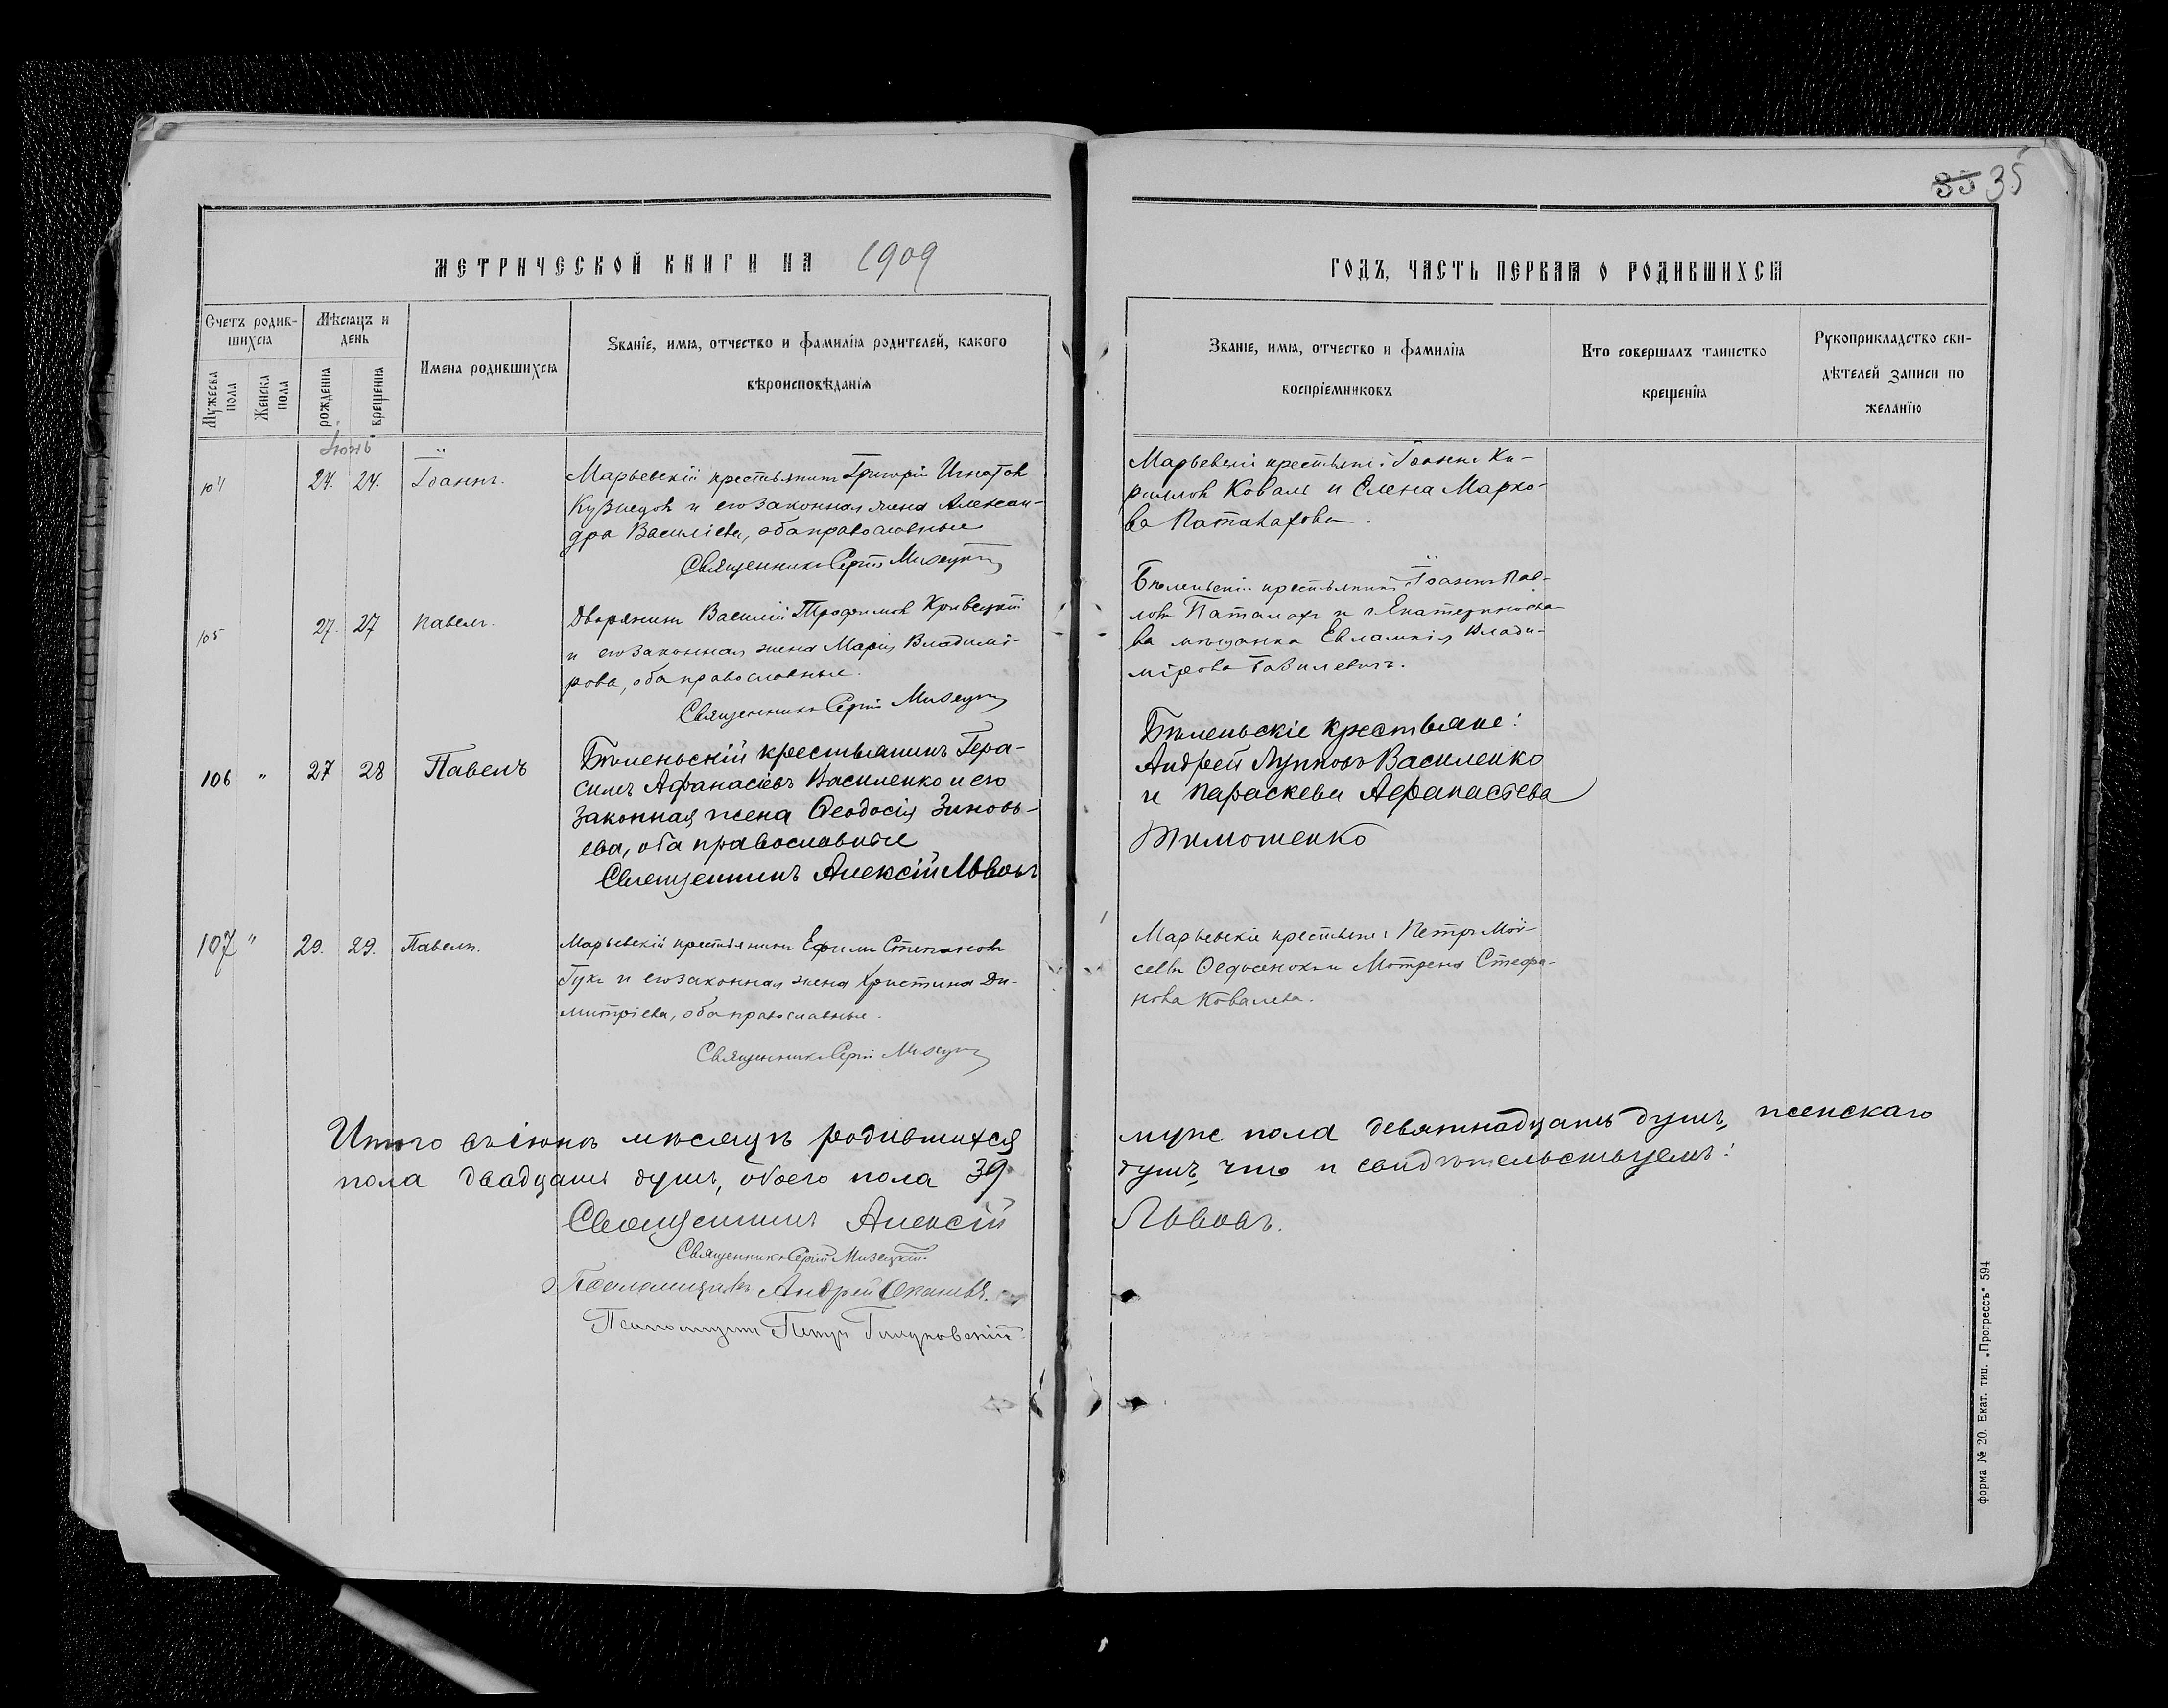 35 35
МЕТРИЧЕСКОЙ КНИГИ НА 1909
ГОДЪ, ЧАСТЬ ПЕРВАЯ О РОДИВШИХСЯ
Счетъ родив-
шихся
Мѣсяцъ и
день
Мужеска
пола
Женска
пола
рожденія
крещенія
Имена родившихся
Званіе, имя, отчество и фамилія родителей, какого
вѣроисповѣданія
Званіе, имя, отчество и фамилія
воспріемниковъ
Кто совершалъ таинство
крещенія
Рукоприкладство сви-
дѣтелей записи по
желанію
Іюнь
104 24. 24. Іоаннъ.
Марьевскій крестьянинъ Григорій Игнатов
Кузнецов и его законная жена Алексан-
дра Василіева, оба православные
Священникъ Сергій Мизецкій
Марьевскіе крестьяне: Іоаннъ Ки-
риллов Коваль и Елена Марко-
ва Паталахова.
105 27. 27 Павелъ.
Дворянинъ Василій Трофимов Кривецкій
и его законная жена Марія Владимі-
рова, оба православные.
Священникъ Сергій Мизецкій
Бѣленьскій крестьянинъ Іоаннъ Пав-
ловъ Паталахъ и г. Екатериносла-
ва мѣщанка Евлампія Влади-
мірова
106 " 27 28 Павелъ
Бѣленьскій крестьянинъ Гера-
симъ Афанасіевъ Василенко и его
законная жена Ѳеодосія Зиновь-
ева, оба православные
Священникъ Алексій Львовъ
Бѣленьскіе крестьяне:
Андрей Лупповъ Василенко
и Параскева Афанасіева
Тимошенко
107 " 29. 29. Павелъ.
Марьевскій крестьянинъ Ефимъ Степановъ
Гукъ и его законная жена Христина Ди-
митріева, оба православные.
Священникъ Сергій Мизецкій
Марьевскіе крестьяне: Петръ Мои-
сеевъ и Мотрена Стефа-
нова Ковалева.
Итого въ іюнѣ мѣсяцѣ родившихся муже пола девятнадцать душъ, женскаго
пола двадцать душъ, обоего пола 39 душъ, что и свидѣтельствуемъ:
Священникъ Алексій Львовъ.
Священникъ Сергій Мизецкій
Псаломщикъ Андрей
Псаломщикъ Петръ
форма № 20. Екат. тип. „Прогрессъ" 594